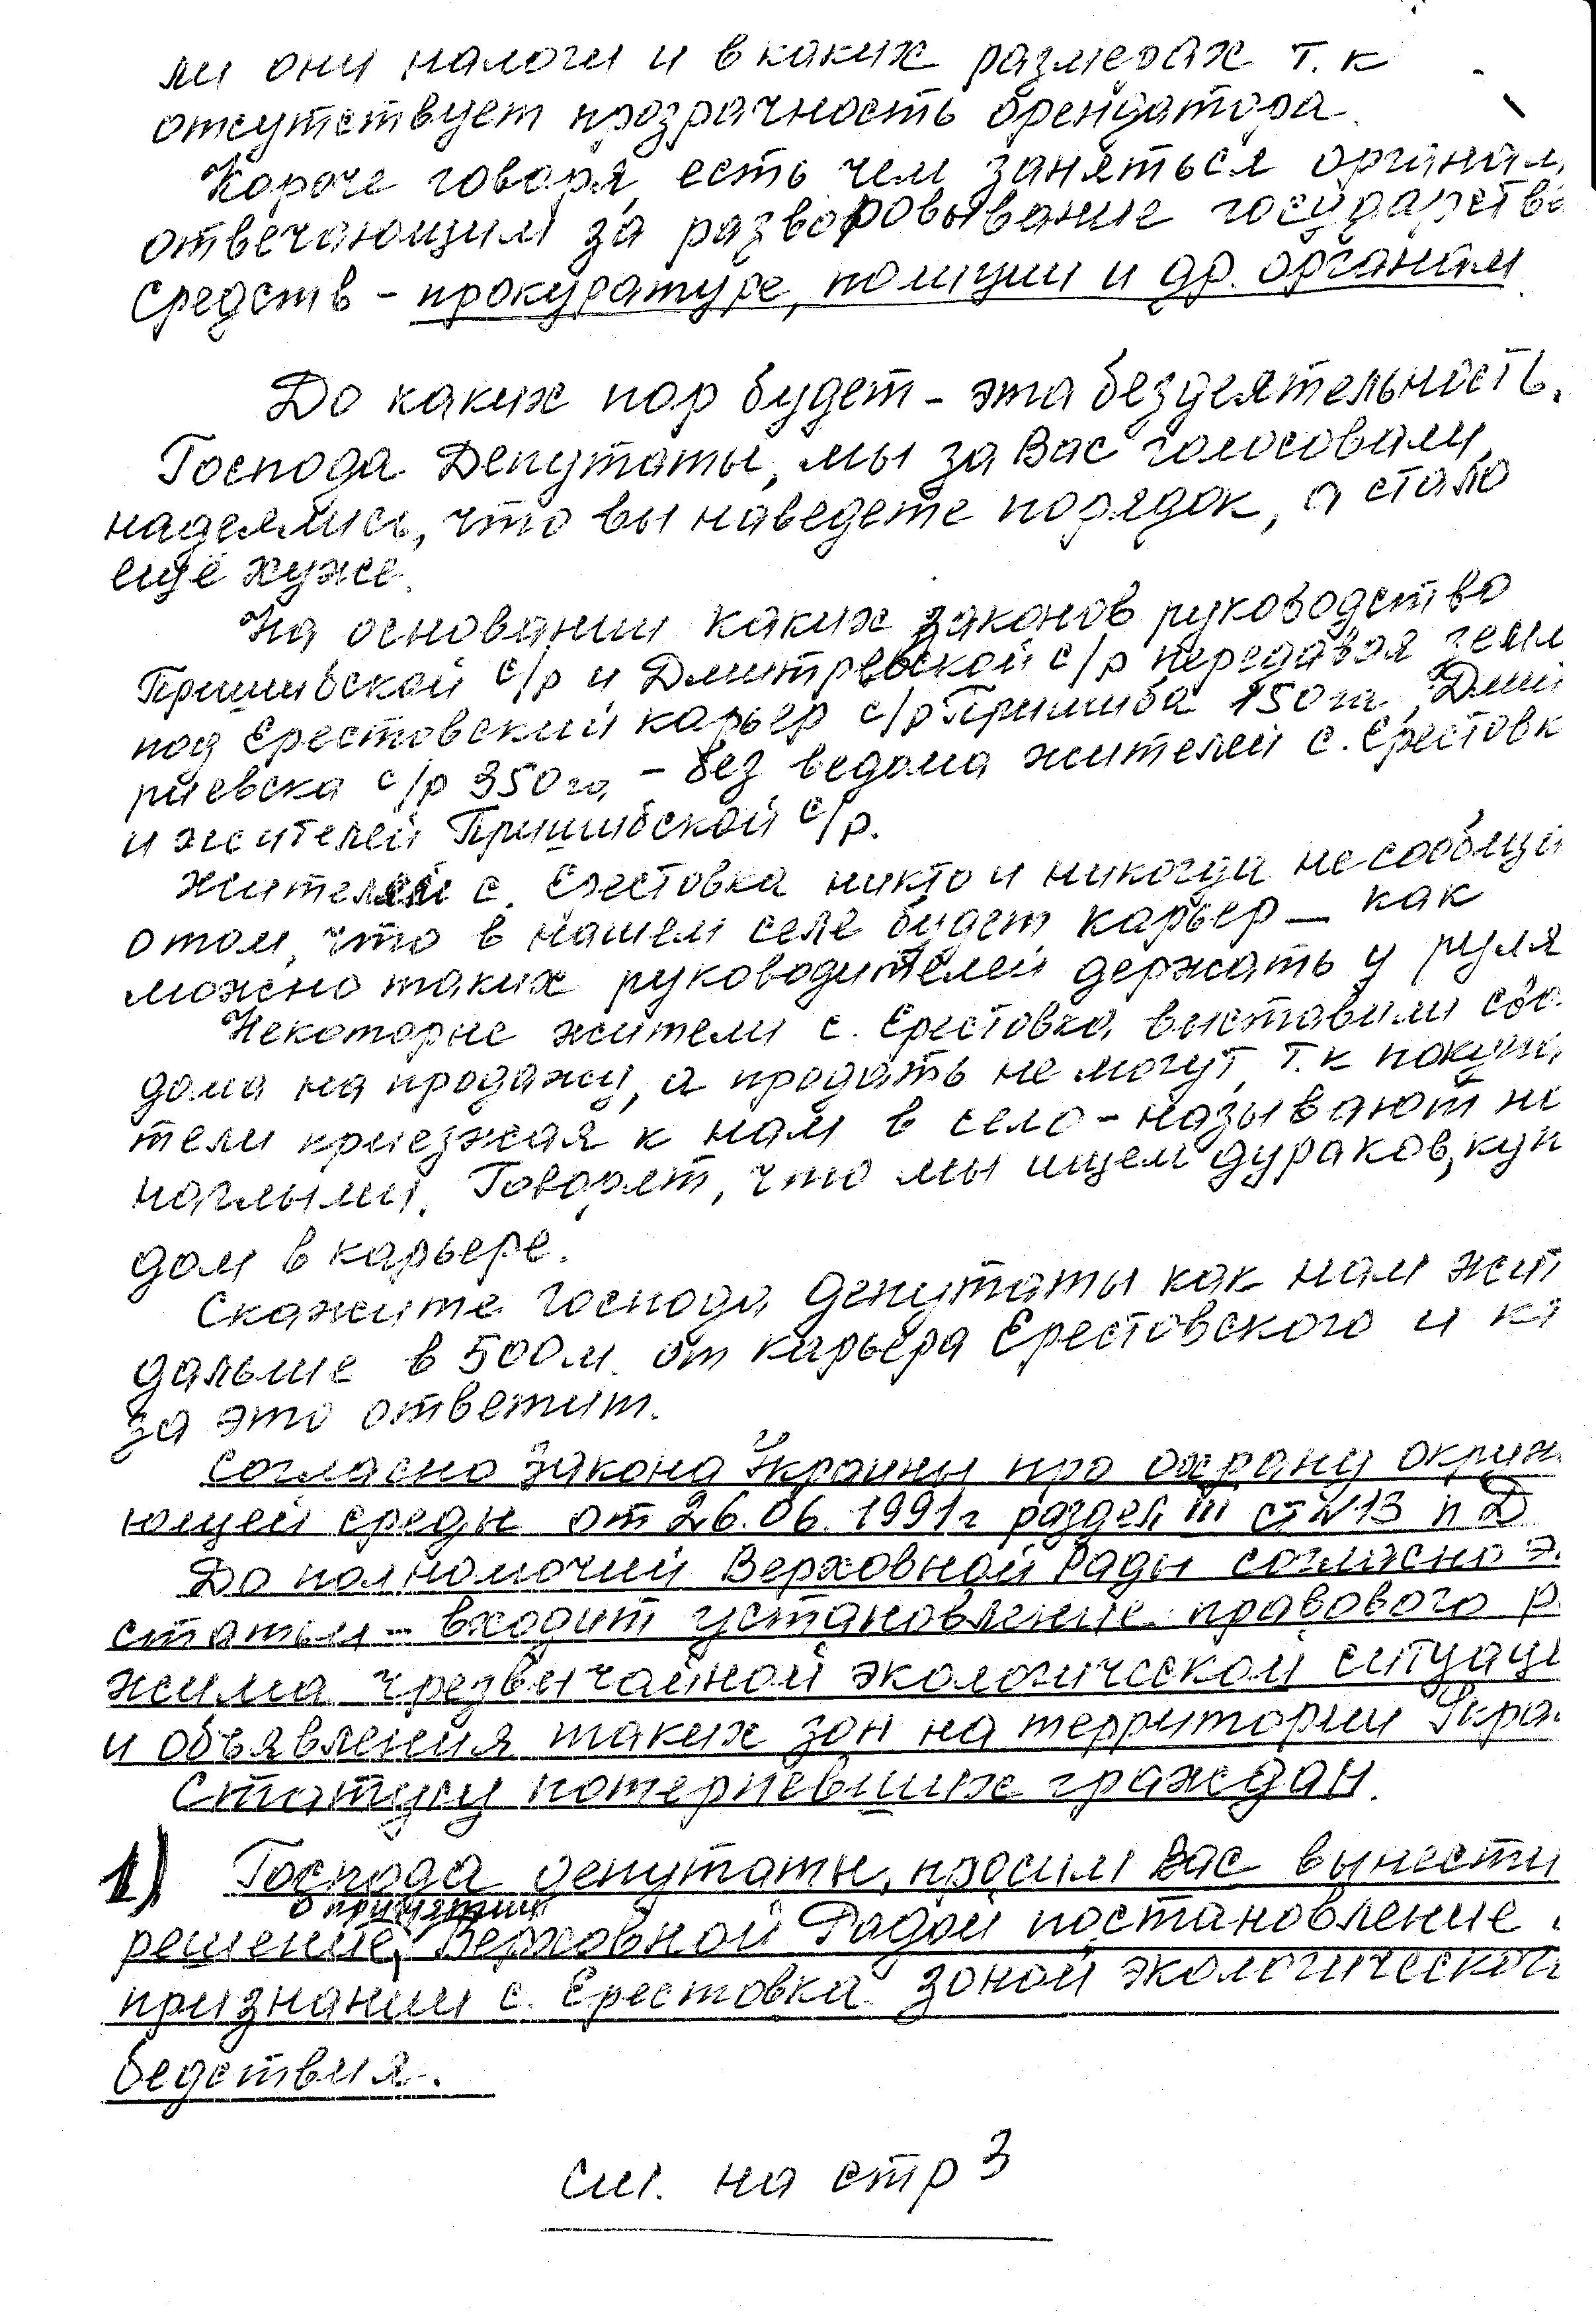 ли они налоги и в каких размерах т.к
отсутствует прозрачность орендатора.
Короче говоря, есть чем заняться органам,
отвечающим за разворовывание государстве
средств - прокуратуре, полиции и др. органам.
До каких пор будет - эта бездеятельность.
Господа Депутаты, мы за Вас голосовали,
надеялись, что вы наведете порядок, а стало
ещё хуже.
На основании каких законов руководство
Пришибской с/р и Дмитревской с/р передавая земл
под Ерестовский карьер с/р Пришиба 150 га, Дмит
риевска с/р 350 га, - без ведома жителей с. Ерестовк
и жителей Пришибской с/р.
Жителям с. Ерестовка никто и никогда не сообщи
о том, что в нашем селе будет карьер - как
можно таких руководителей держать у руля
Некоторые жители с. Ерестовка выставили сво
дома на продажу, а продать не могут, т.к покупа
тели приезжая к нам в село - называют на
наглыми. Говорят, что мы ищем дураков, куп
дом в карьере.
Скажите господа депутаты как нам жит
дальше в 500 м. от карьера Ерестовского и кт
за это ответит.
Согласно закона Украины про охрану окруж
ющей среды от 26.06.1991г раздел III ст №13 п Д
До полномочий Верховной Рады согласно э
статьи - входит установление правового р
жима чрезвычайной экологической ситуаци
и объявления таких зон на территории Укра
Статусу потерпевших граждан.
1) Господа депутаты, просим Вас вынести
о принятии
решение Верховной Радой постановление
признании с. Ерестовка зоной экологической
бедствия.
см. на стр 3